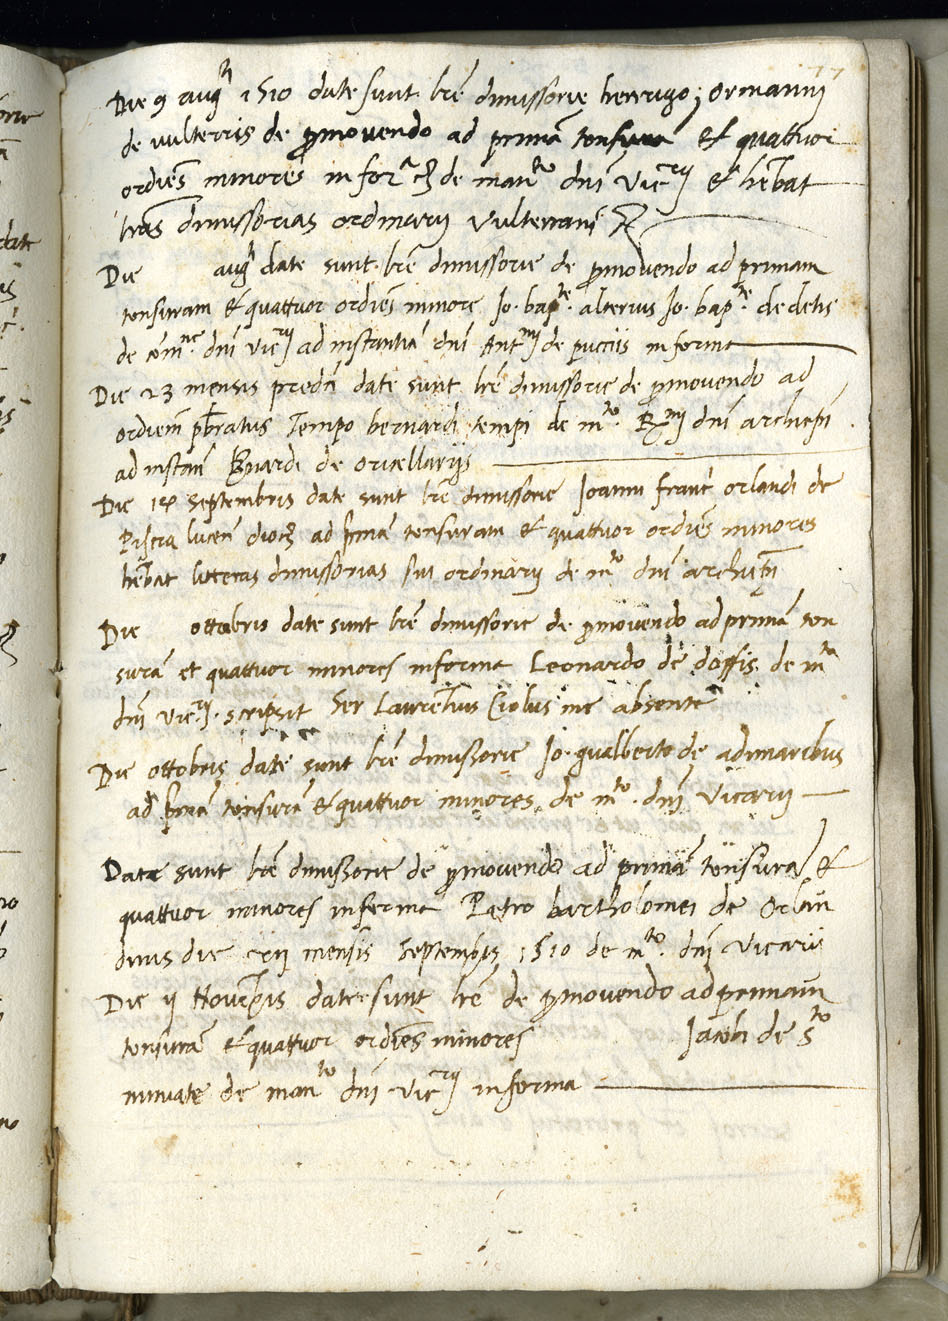 77
Die 9 augti 1510 date sunt lre dimissorie henrigo j ormanni
de vulterris de promovendo ad primã tonsura et quattuor
ordies minores in for de manto dni Vicrij et hebat
lras dimissorias ordinarij Vulterrani
Die augti date sunt lre dimissorie de promovendo ad primam
tonsuram et quattuor ordies minore Jo. bapte alterius Jo. bapte de detis
de comne. dni vicrij ad instantiã dni Antnij de pucciis in forma
Die 23 mensis predci date sunt lre dimissorie de promovendo ad
ordiem pbratus Tempo bernardi tempi de mto Rmi dni archiepi
ad instan de oricellarijs
Die septembris date sunt lre dimissorie Joanni franci orlandi de
Piscia lucen dioc ad primã tonsuram et quattuor ordies minores
hebat litteras dimissorias sui ordinarij de mto dni archiepi
Die ottobris date sunt lre dimissorie de promovendo ad primã ton
surã et quattuor minores in forma Leonardo de doffis de mto
dni vicrij. scripsit Ser Laurentius Ciolus me absente
Die ottobris date sunt lre dimissorie Jo. gualberto de adimaribus
ad primã tonsurã et quattuor minores de mto. dni Vicarij
Date sunt lre dimissorie de promovendo ad primã tonsurã et
quattuor minores in forma Petro bartholomei de Orlan
dinis die xij mensis septembris 1510 de mto. dni vicarii
Die ij Novembris date sunt lre de promovendo ad primam
tonsurã et quattuor ordies minores Jacobi de Sto
miniate de manto dni vicrij in forma